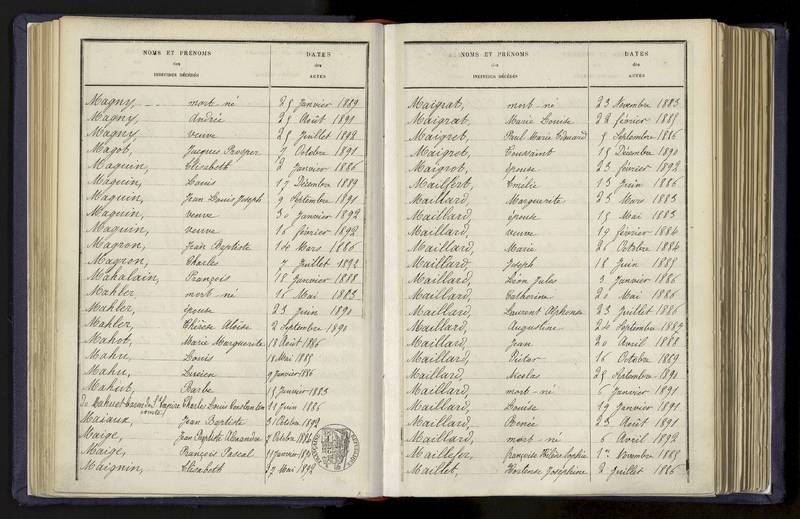 NOMS ET PRÉNOMS des INDIVIDUS DÉCÉDÉS DATES des ACTES
Magny, mort-né 25 Janvier 1889
Magny, Andrée 25 Août 1891
Magny, veuve 25 Juillet 1892
Magot, Jacques Prosper 7 Octobre 1891
Maguin, Elisabeth 2 Janvier 1886
Maguin, Louis 17 Décembre 1889
Maguin, Jean Louis Joseph 9 Septembre 1891
Maguin, veuve 30 Janvier 1892
Maguin, veuve 10 février 1892
Magron, Jean Baptiste 14 Mars 1886
Magron, Charles 7 Juillet 1892
Mahalain, François 18 Janvier 1888
Mahler, mort-né 16 Mai 1883
Mahler, épouse 23 Juin 1891
Mahler, Thérèse Aloïse 2 Septembre 1890
Mahot, Marie Marguerite 18 Août 1886
Mahu, Louis 18 Mai 1885
Mahu, Lucien Janvier 1886
Mahut, Barbe 15 Janvier 1883
Charles Louis Constantin 11 Juin 1886
Maiaux, Jean Baptiste 31 Octobre 1892
Maige, Jean Baptiste Alexandre Octobre 1882
Maige, François Pascal 11 Janvier
Maignin, Elisabeth 27 Mai 1892
NOMS ET PRÉNOMS des INDIVIDUS DÉCÉDÉS DATES des ACTES
Maigrat, mort-né 23 Novembre 1883
Maigrat, Marie Louise 22 février 1885
Maigret, Paul Marie Edouard 5 Septembre 1886
Maigret, Toussaint 15 Décembre 1890
Maigrot, épouse 23 février 1892
Mailfert, Amélie 13 Juin 1886
Maillard, Marguerite 25 Mars 1883
Maillard, épouse 15 Mai 1883
Maillard, veuve 19 février 1884
Maillard, Marie 26 Octobre 1884
Maillard Joseph 18 Juin 1885
Maillard, Léon Jules 3 Janvier 1886
Maillard, Catherine 20 Mai 1886
Maillard, Laurent Alphonse 23 Juillet 1886
Maillard, Augustine 24 Septembre 1887
Maillard, Jean 20 Avril 1888
Maillard, Victor 16 Octobre 1889
Maillard, Nicolas 25 Septembre 1890
Maillard, mort-né 6 Janvier 1891
Maillard, Louise 19 Janvier 1891
Maillard, Renée 25 Août 1891
Maillard, mort-né 6 Avril 1892
Maillefer, françoise Hélène Sophie 1er Novembre 1885
Maillet, Hortense Joséphine 2 Juillet 1886